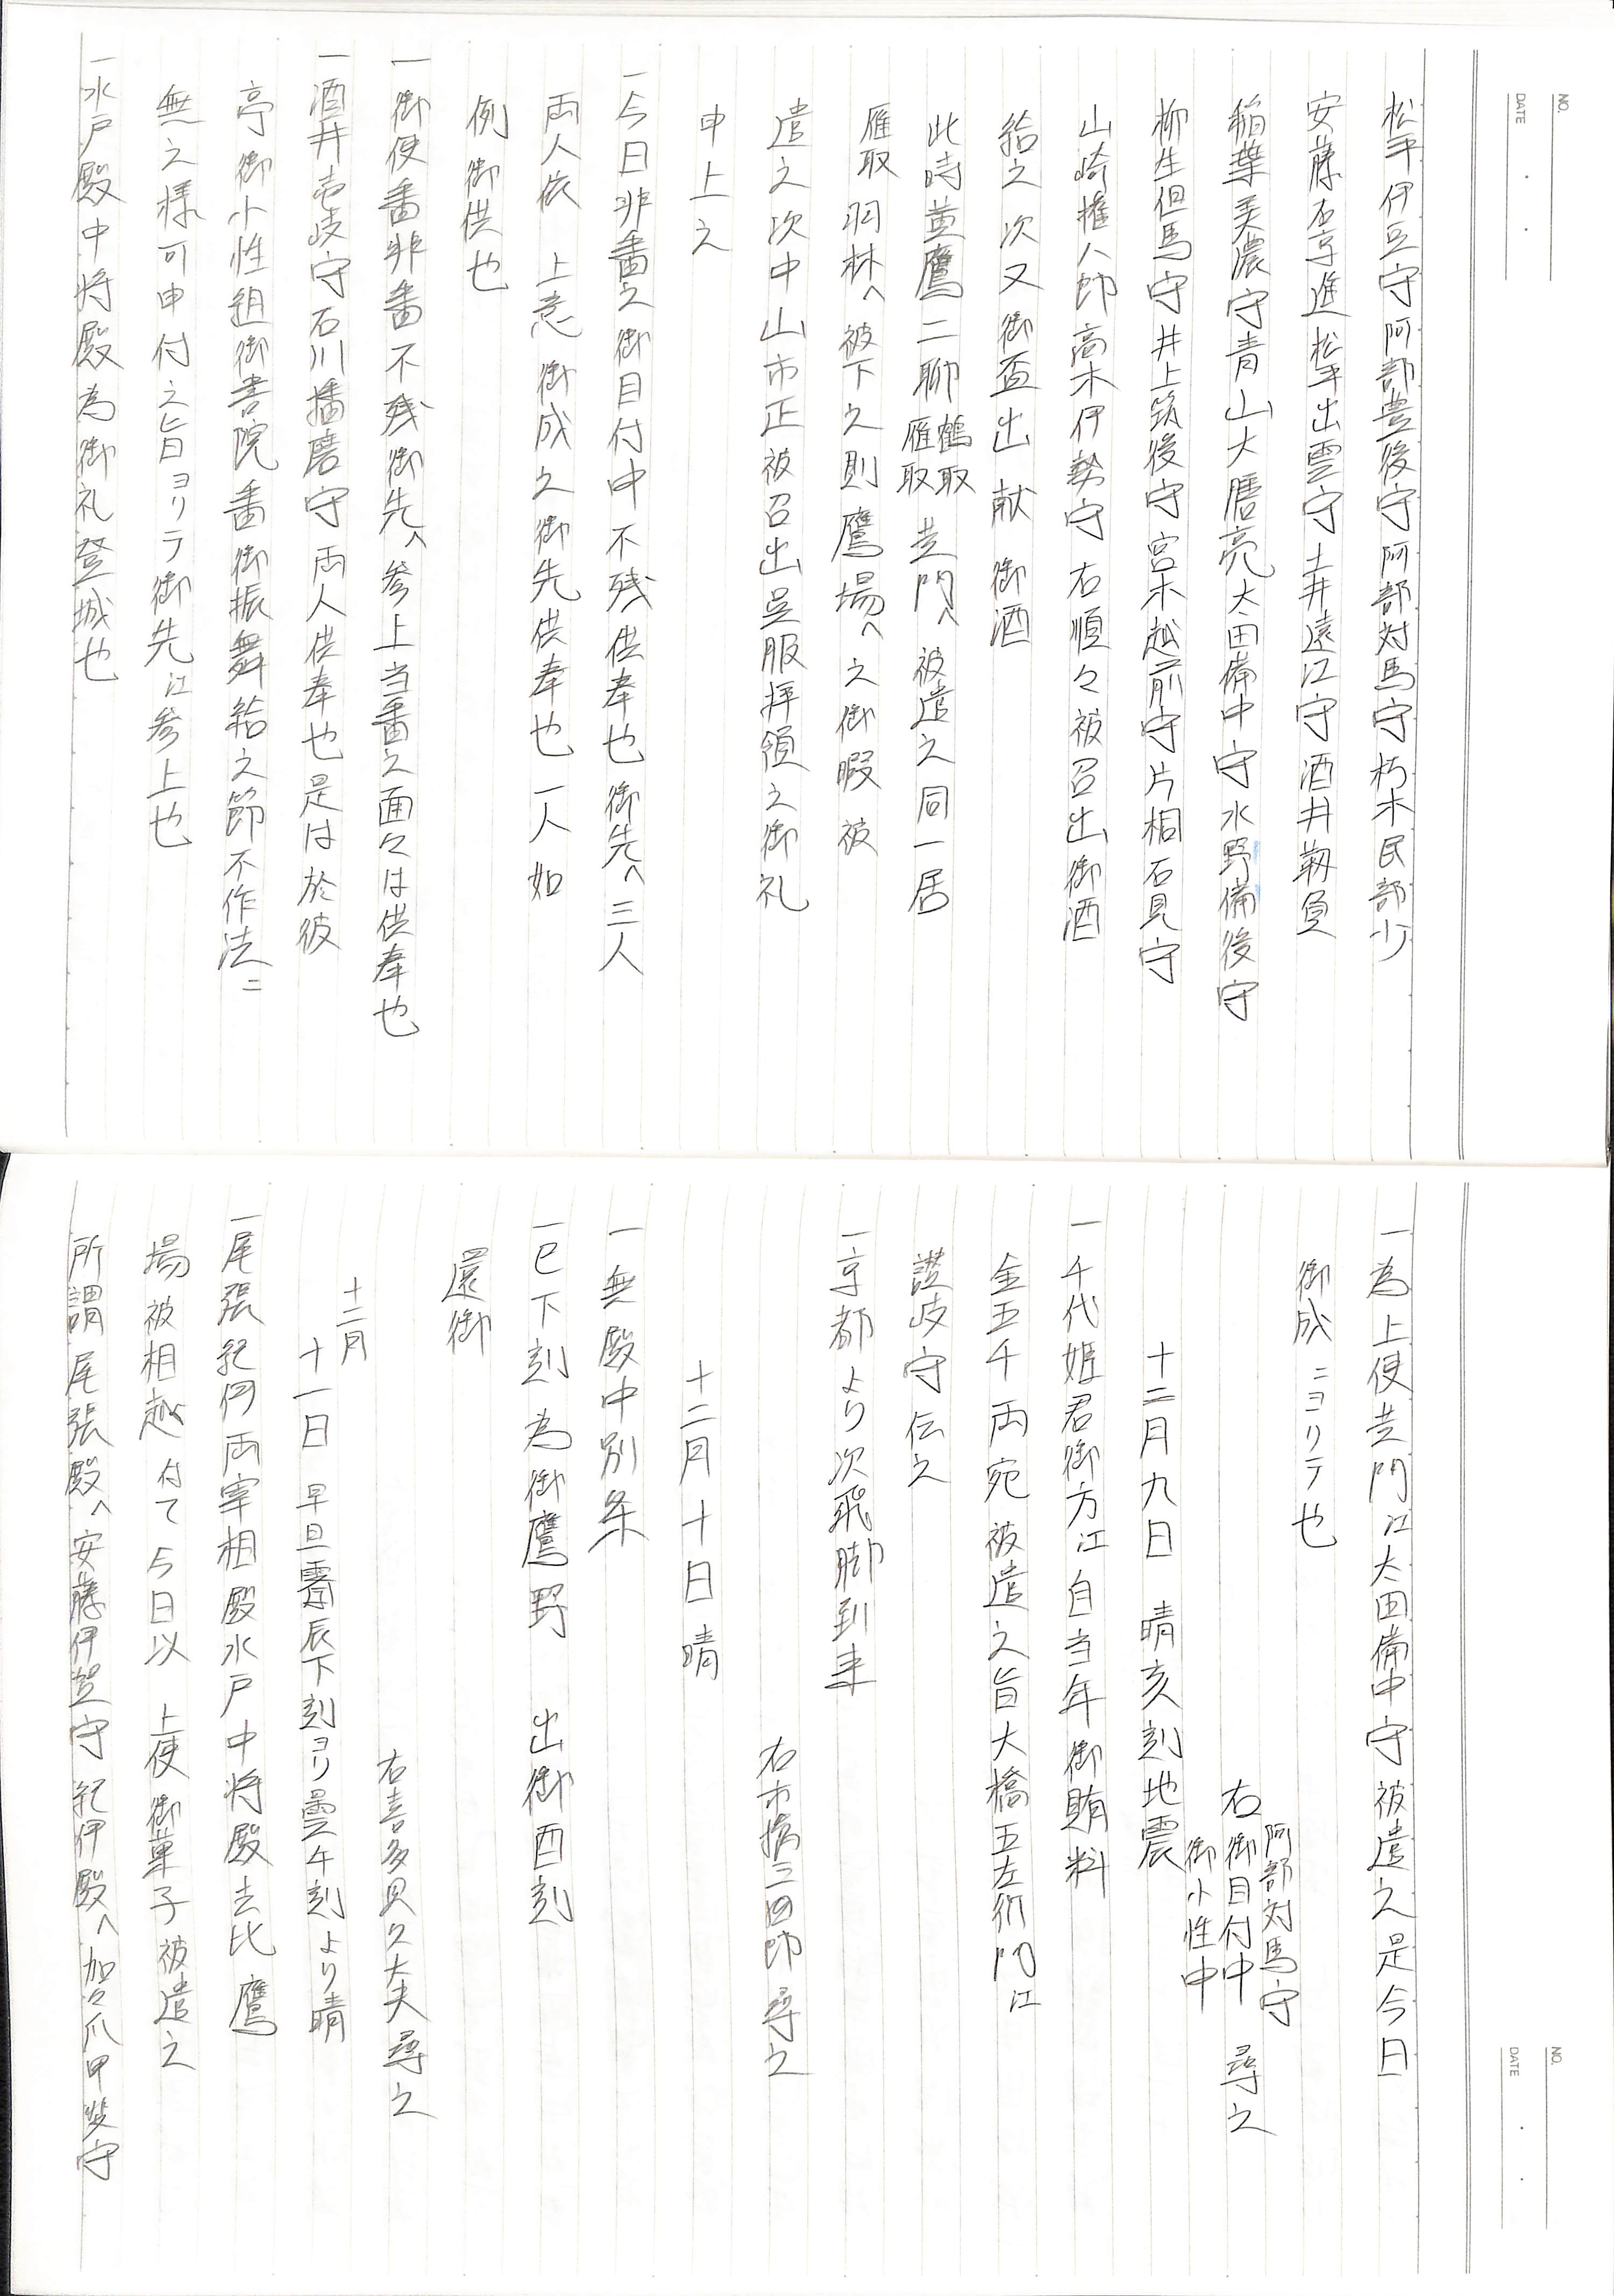 NO.
DATE
松平伊豆守阿部豊後守阿部対馬守朽木民部少
安藤右京進松平出雲守土井遠江守酒井靱負
稲葉美濃守青山大膳亮太田備中守水野備後守
柳生但馬守井上筑後守宮木越前守片桐石見守
山崎権八郎高木伊勢守右順々被召出御酒
給之次又御盃出献御酒
此時並鷹二聯鶴取雁取黄門へ被遣之同一居
雁取羽林へ被下之則鷹場へ之御暇被
遣之次中山市正被召出呉服拝領之御礼
申上之
一今日非番之御目付中不残供奉也御先へ三人
両人依 上意御成之御先供奉也一人如
例御供也
一御使番非番不残御先へ参上当番之面々は供奉也
一酒井壱岐守石川播磨守両人供奉也是は於彼
亭御小性組御書院番御振舞給之節不作法ニ
無之様可申付之旨ヨリテ御先江参上也
一水戸殿中将殿為御礼登城也
NO.
DATE
一為上使黄門江太田備中守被遣之是今日
御成ニヨリテ也
阿部対馬守
右御目付中 尋之
御小性中
十二月九日 晴亥刻地震
一千代姫君御方江自当年御賄料
金五千両宛被遣之旨大橋五左衛門江
讃岐守伝之
一京都より次飛脚到来
右市橋三四郎尋之
十二月十日晴
一無殿中別条
一巳下刻為御鷹野 出御酉刻
還御
右喜多見久大夫尋之
十二月
十一日 早旦霽辰下刻ヨリ曇午刻より晴
一尾張紀伊両宰相殿水戸中将殿去比鷹
場被相越付て今日以 上使御菓子被遣之
所謂尾張殿へ安藤伊賀守紀伊殿へ加々爪甲斐守